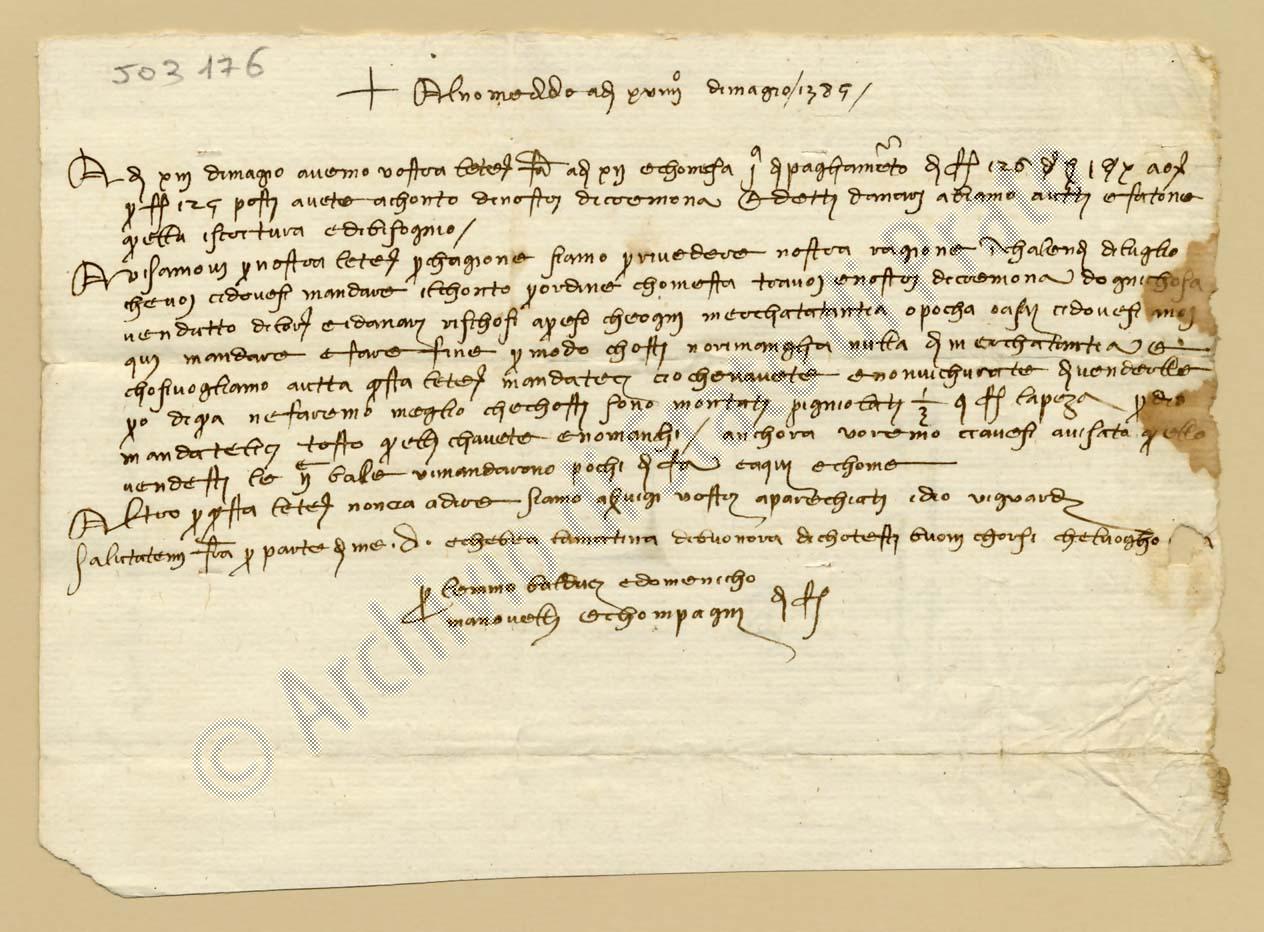 503 176
+ Al nome di dio adj xviiijº di magio / 1385 /
A dj xiij di magio avemo vostra letera fta adj xij e chon esa jª di paghamento di ff 126
per ff 125 posti avete a chonto di nostri di cremona E detti danari abiamo autti e fatone
quella iscrittura e di bisognio /
Avisamovi per nostra letera per chagione siamo per rivedere nostra ragione chalendi di luglio
che voi ci dovesi mandare il chonto per ordine chome sta tra voi e nostri di cremona d ogni chosa
vendutto di loro e i danari rischosi apreso che ogni merchatantia o pocha o asai ci dovesi
qui mandare e fare fine per modo chosti no rimangha nulla di merchatantia E
chosi vogliamo autta questa letera mandateci cio che n avete e non vi churate di venderlle
pero di qua ne faremo meglio che chosti sono montati pigniolati 1/2 ff la peza per dio
mandateloci tosto quelli ch avete e no manchi / anchora voremo ci avesi avisato quello
vendesti le ij bale vi mandarono pochi di fa e a qui e chome
Altro per questa letera non c a a dire siamo a servigi vostri aparechiati idio vi guardi
Salutatemi per parte di me . D . e la matina di buon ora di chotesti buoni chorsi che luogho
per lemmo balducci e domenicho
manovelli e chompagni di ff
© Archivio di Stato di Prato